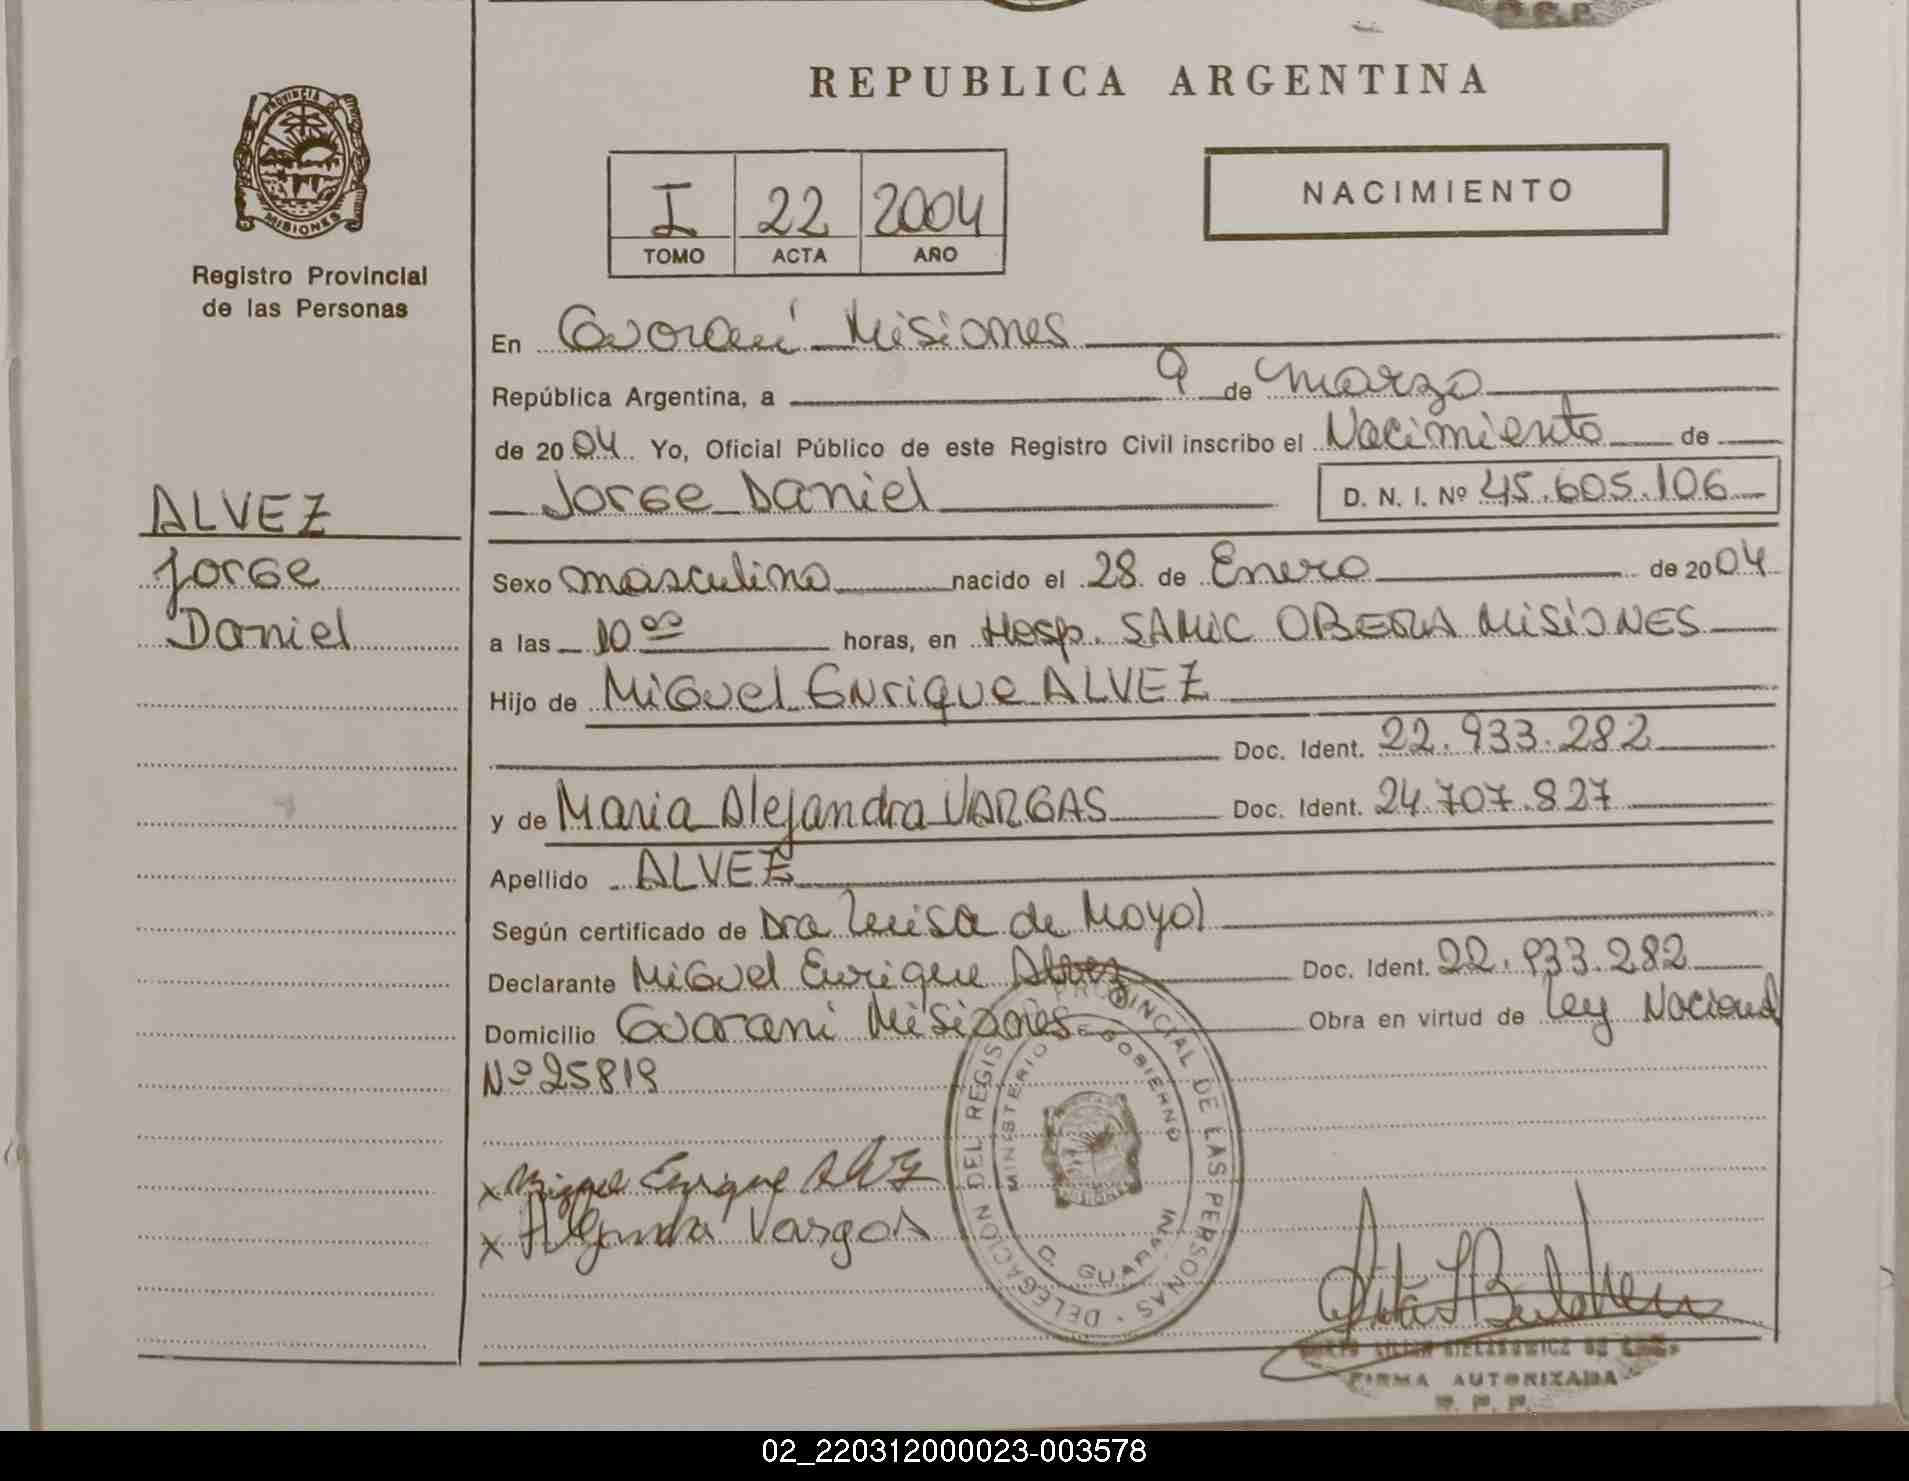 REPUBLICA ARGENTINA
PROVINCIA DE
MISIONES
Registro Provincial
de las Personas
I 22 2004
TOMO ACTA AÑO
NACIMIENTO
En Guaraní Misiones
República Argentina, a 9 de marzo
de 2004. Yo, Oficial Público de este Registro Civil inscribo el Nacimiento de
Jorge Daniel D. N. I. Nº 45.605.106
ALVEZ
Jorge
Daniel
Sexo masculino nacido el 28 de Enero de 2004
a las 10 00 horas, en Hosp. SAMIC OBERA MISIONES
Hijo de Miguel Enrique ALVEZ
Doc. Ident. 22.933.282
y de Maria Alejandra VARGAS Doc. Ident. 24.707.827
Apellido ALVEZ
Según certificado de Dra Luisa de Moyol
Declarante Miguel Enrique Alvez Doc. Ident. 22.933.282
Domicilio Guarani Misiones Obra en virtud de Ley Nacional
Nº 25819
x Miguel Enrique Alvez
x Alejandra Vargas
DELEGACION DEL REGISTRO PROVINCIAL DE LAS PERSONAS
MINISTERIO DE GOBIERNO
C. GUARANI
FIRMA AUTORIZADA
R. P. P.
02_220312000023-003578